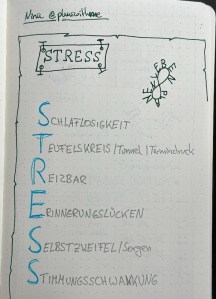 Nina @pluswithome
STRESS
SCHLAFLOSIGKEIT
TEUFELSKREIS/Tunnel/Termindruck
REIZBAR
ERINNERUNGSLÜCKEN
SELBSTZWEIFEL/Sorgen
STIMMUNGSSCHWANKUNG